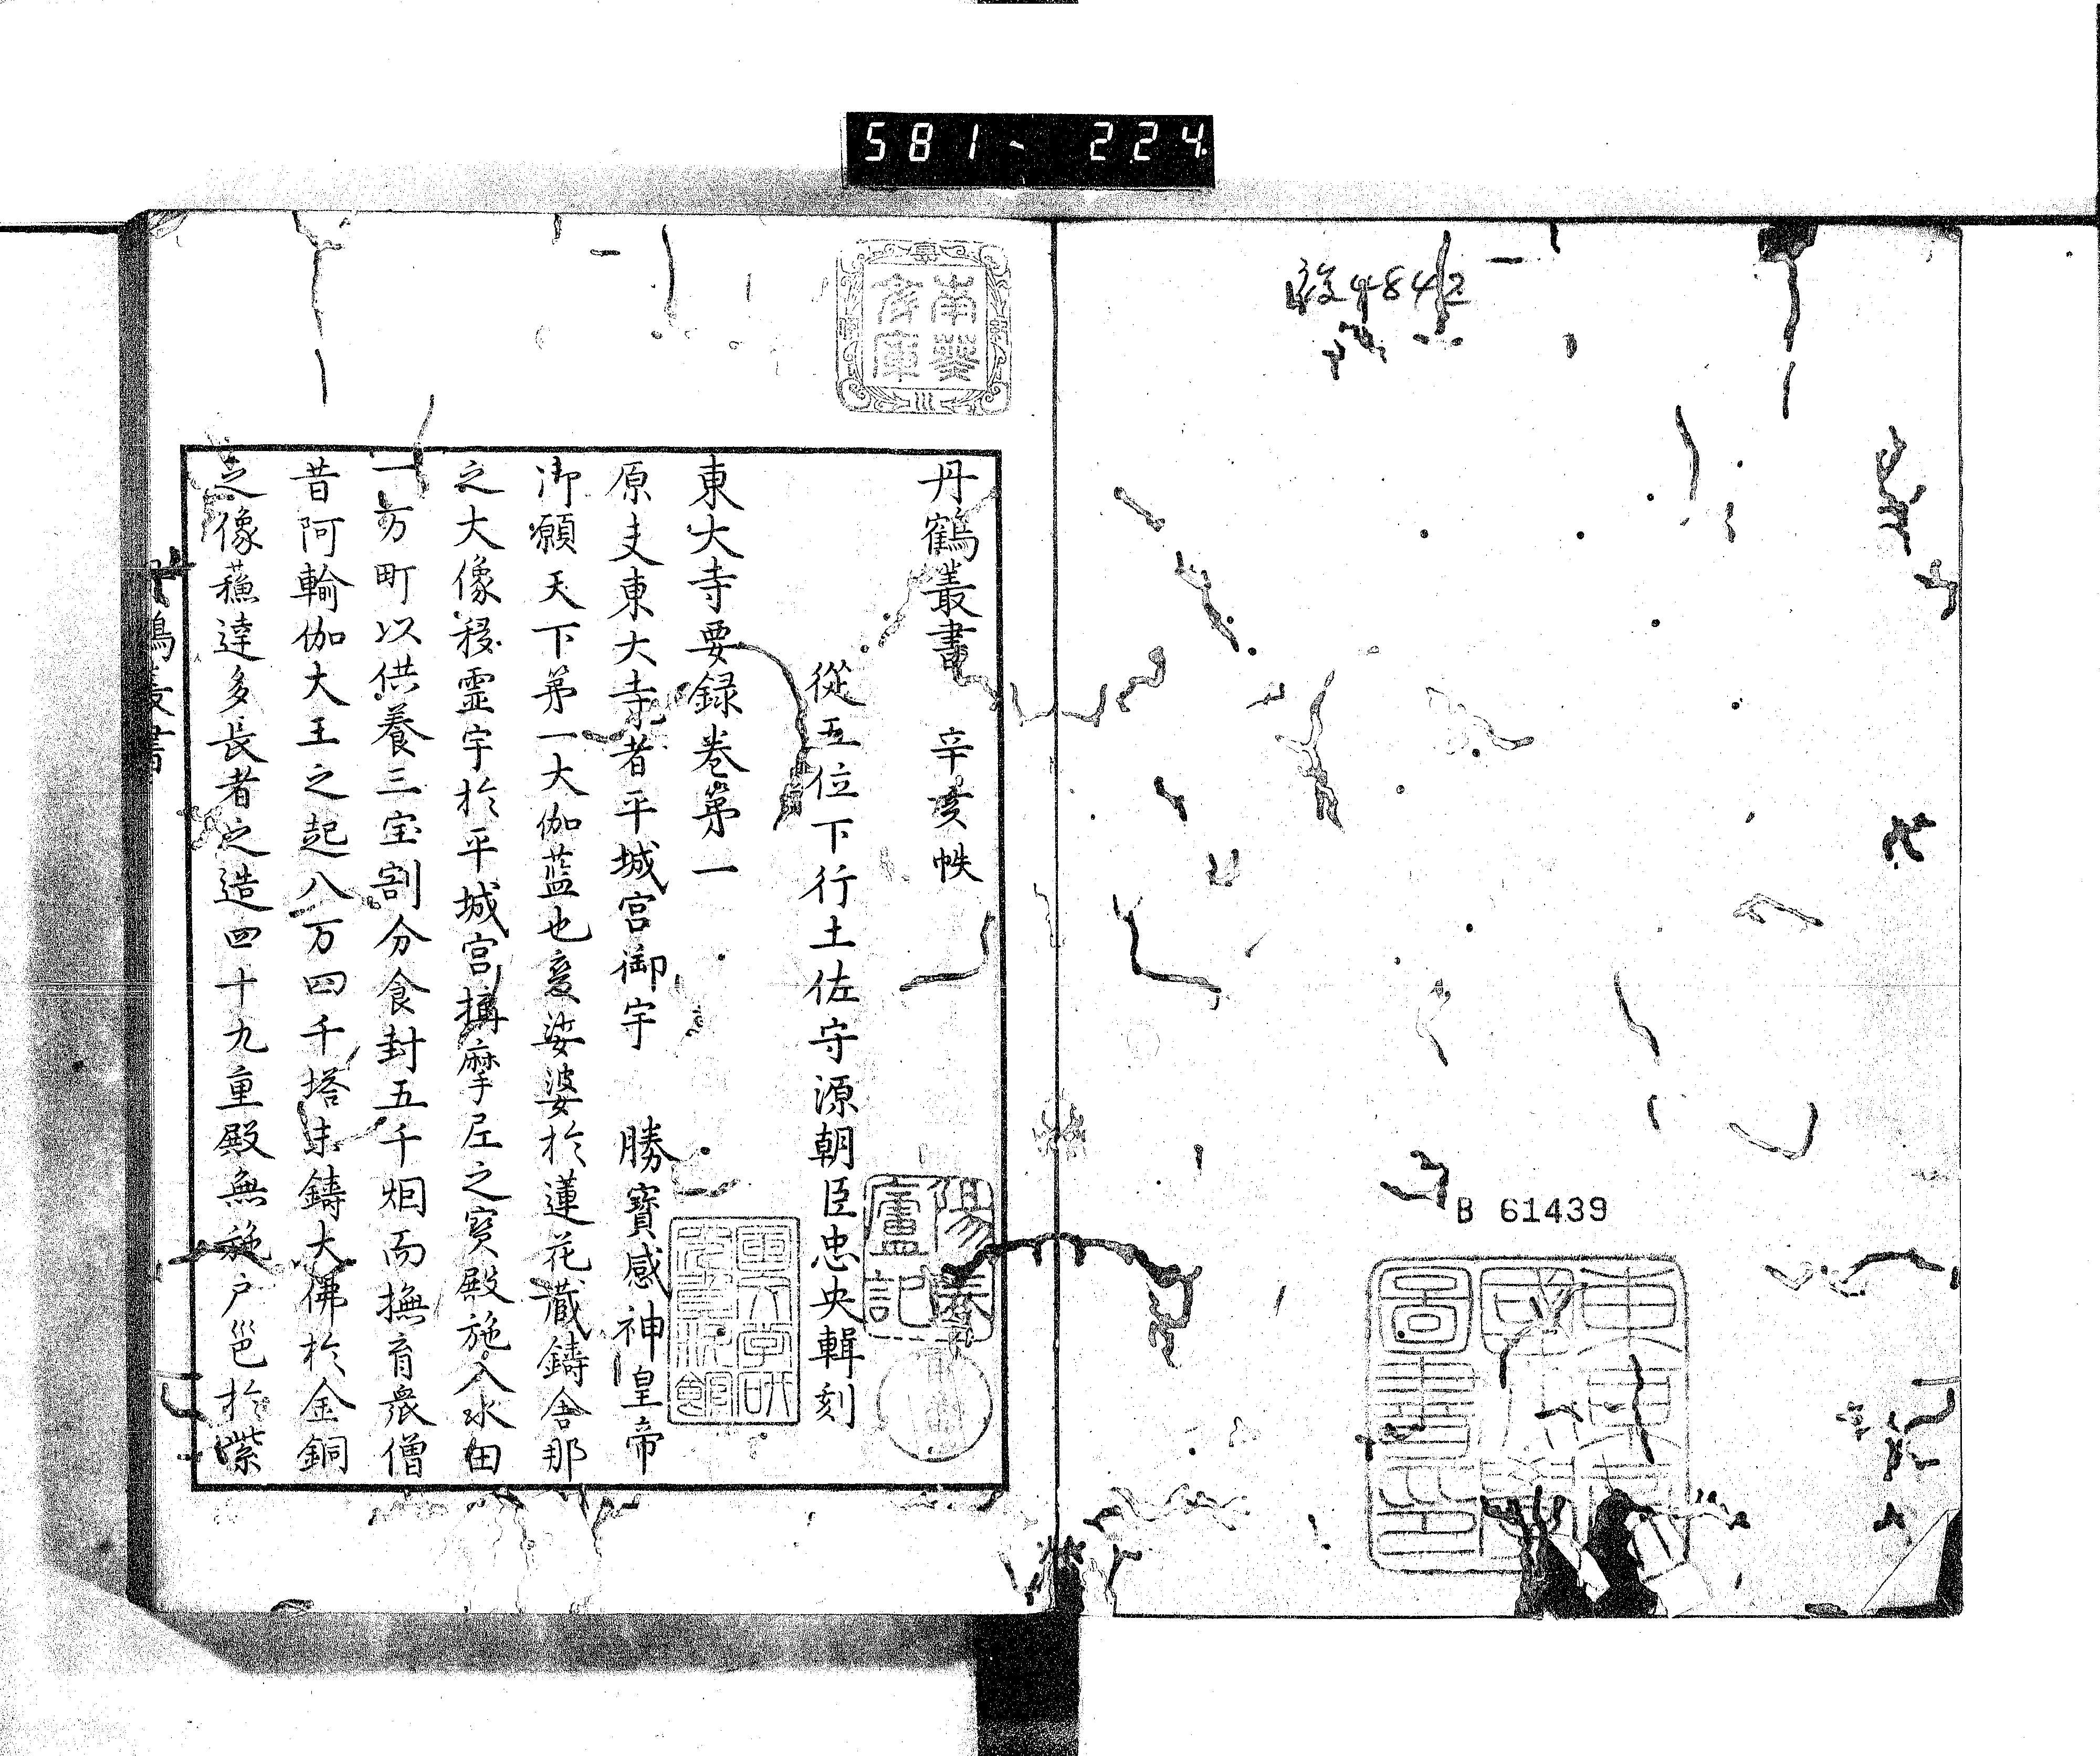 581-224
設4842
B 61439
東京
國
圖書印
南葵
文庫
丹鶴叢書 辛亥帙
陽春
廬記
從五位下行土佐守源朝臣忠央輯刻
東大寺要録巻第一
原夫東大寺者平城宮御宇 勝寳感神皇帝
御願天下第一大伽藍也爰娑婆於蓮花蔵鑄舎那
之大像移霊宇於平城宮構摩尼之寳殿施入水田
一万町以供養三宝割分食封五千烟而撫育衆僧
昔阿輸伽大王之起八万四千塔未鑄大佛於金銅
之像蘓達多長者之造四十九重殿無施戸邑於紫
鶴叢書